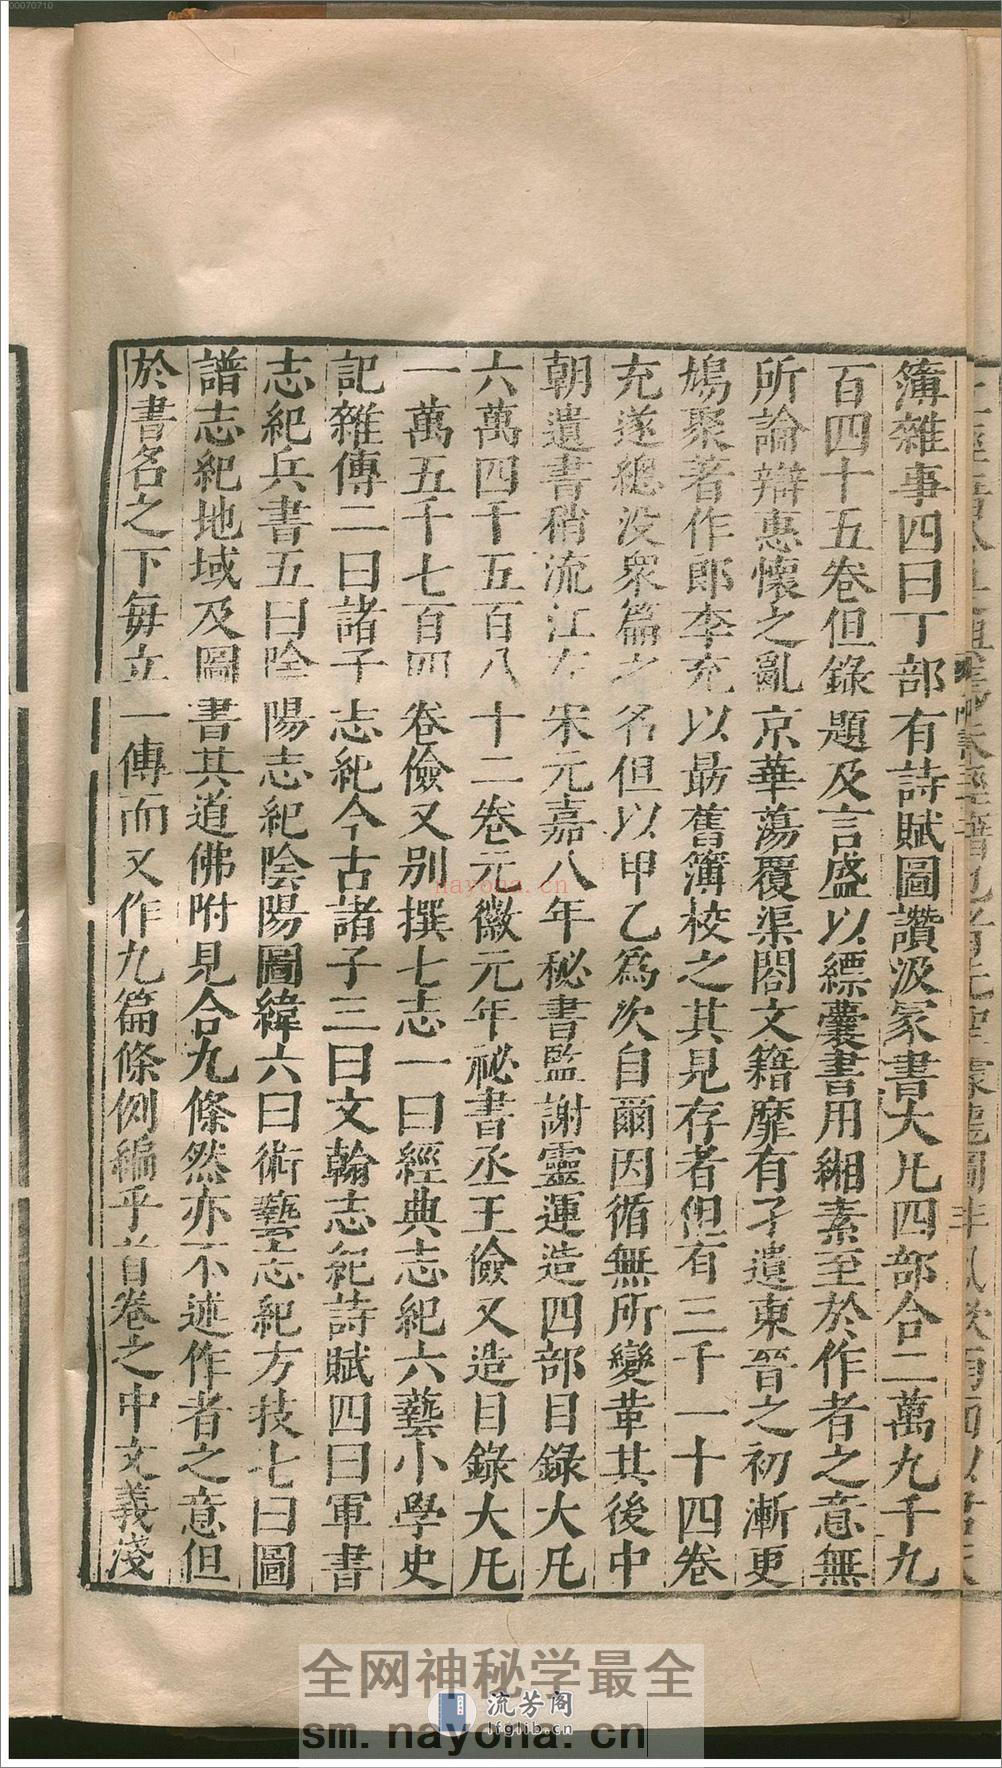 簿雜事四曰丁部有詩賦圖讚汲冢書大凡四部合二萬九千九
百四十五卷但錄題及言盛以縹囊書用緗素至於作者之意無
所論辯惠懷之亂京華蕩覆渠閣文籍靡有孑遺東晉之初漸更
鳩聚著作郎李充以勗舊簿校之其見存者但有三千一十四卷
充遂總没衆篇之名但以甲乙爲次自爾因循無所變革其後中
朝遺書稍流江左宋元嘉八年秘書監謝靈運造四部目錄大凡
六萬四千五百八十二卷元徽元年祕書丞王儉又造目錄大凡
一萬五千七百四卷儉又別撰七志一曰經典志紀六藝小學史
記雜傳二曰諸子志紀今古諸子三曰文翰志紀詩賦四曰軍書
志紀兵書五曰陰陽志紀陰陽圖緯六曰術藝志紀方技七曰圖
譜志紀地域及圖書其道佛附見合九條然亦不述作者之意但
於書名之下每立一傳而又作九篇條例編乎首卷之中文義淺
00070710
nayona.cn
全网神秘学最全
流芳阁
lfglib.cn
sm.nayona.cn